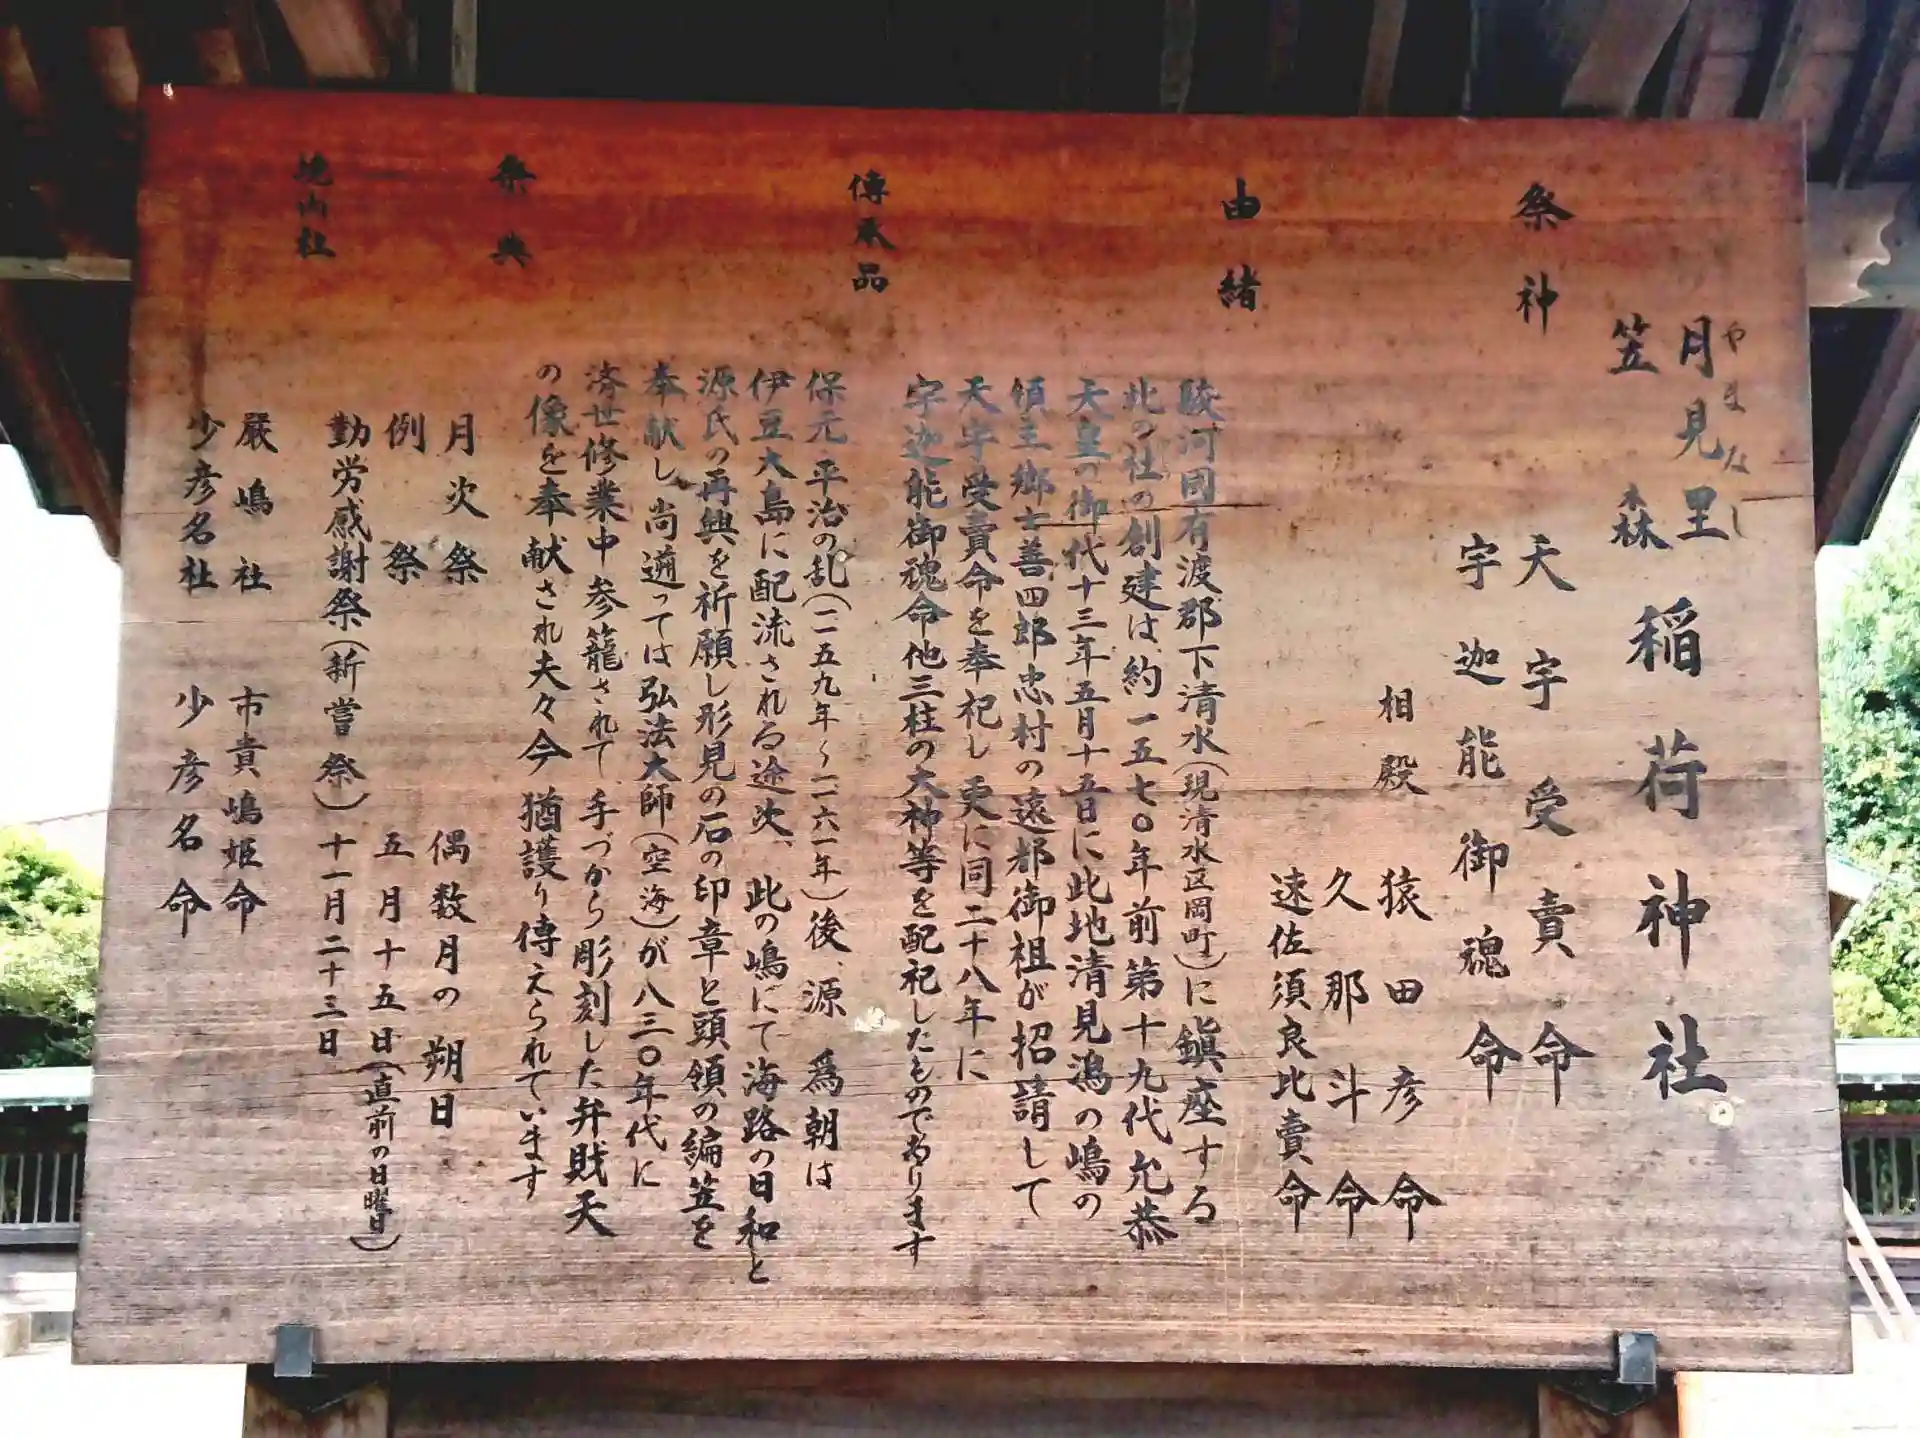 月見里 稲荷神社
やまなし
笠森
祭神
天宇受賣命
宇迦能御魂命
相殿 猿田彦命
久那斗命
速佐須良比賣命
由緒
駿河国有渡郡下清水(現清水区岡町)に鎮座する
此の社の創建は、約一五七〇年前第十九代允恭
天皇の御代十三年五月十五日に此地清見潟の嶋の
領主郷士善四郎忠村の遠都御祖が招請して
天宇受賣命を奉祀し更に同二十八年に
宇迦能御魂命他三柱の大神等を配祀したものであります
傳承品
保元・平治の乱(一一五九年〜一一六一年)後、源為朝は
伊豆大島に配流される途次、此の嶋にて海路の日和と
源氏の再興を祈願し形見の石の印章と頭領の編笠を
奉献し尚遡っては弘法大師(空海)が八三〇年代に
済世修業中参籠されて、手づから彫刻した弁財天
の像を奉献され夫々今猶護り傳えられています
祭典
月次祭 偶数月の朔日
例祭 五月十五日(直前の日曜日)
勤労感謝祭(新嘗祭)十一月二十三日
境内社
厳嶋社 市貴嶋姫命
少彦名社 少彦名命